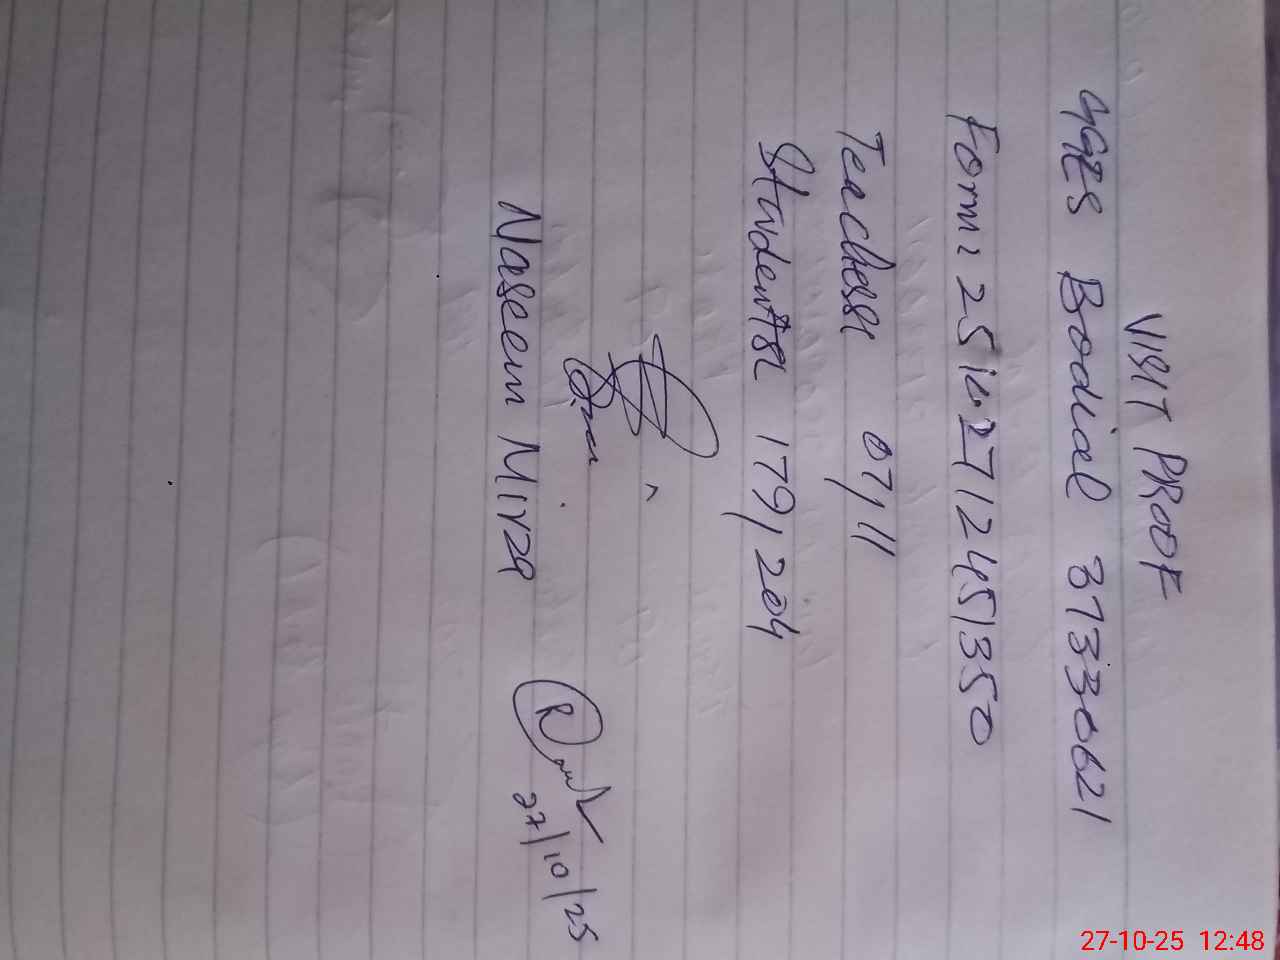 VISIT PROOF
GGES Bodial 37330621
Form: 2514271245/350
Teachers: 07/11
Students: 179/204
Naseem Mirza
27/10/25
27-10-25 12:48